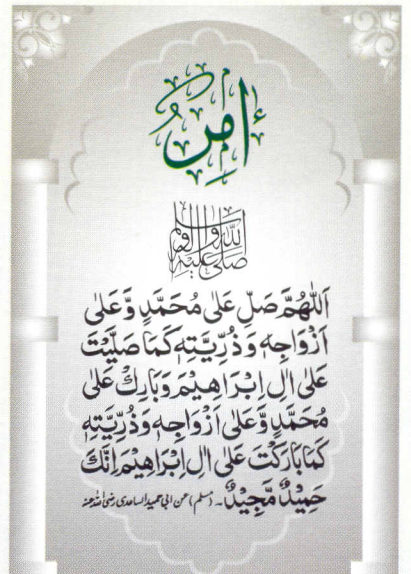 اٰمِرٌ
صَلَّى اللّٰهُ عَلَيْهِ وَاٰلِهٖ وَسَلَّم
اَللّٰهُمَّ صَلِّ عَلٰى مُحَمَّدٍ وَّعَلٰى
اَزْوَاجِهٖ وَذُرِّيَّتِهٖ كَمَا صَلَّيْتَ
عَلٰى اٰلِ اِبْرَاهِيْمَ وَبَارِكْ عَلٰى
مُحَمَّدٍ وَّعَلٰى اَزْوَاجِهٖ وَذُرِّيَّتِهٖ
كَمَا بَارَكْتَ عَلٰى اٰلِ اِبْرَاهِيْمَ اِنَّكَ
حَمِيْدٌ مَّجِيْدٌ۔ (مسلم) عن ابی حمید الساعدی رضی اللہ عنہ